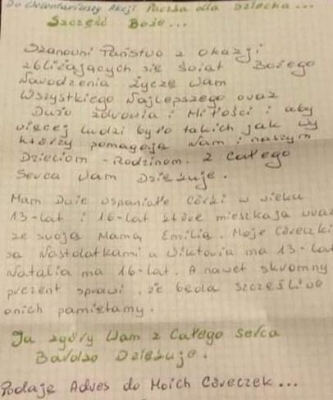 Do Chowtaniuszy Akcji Paczka dla Dziecka...
Szczęść Boże...
Szanowni Państwo z okazji
zbliżających się Świąt Bożego
Narodzenia Życzę Wam
Wszystkiego Najlepszego oraz
Dużo zdrowia i Miłości i aby
więcej ludzi było takich jak wy
którzy pomagają Wam i naszym
Dzieciom - Rodzinom. Z Całego
Serca Wam Dziękuje.
Mam Dwie wspaniałe córki w wieku
13-lat i 16-lat które mieszkają wraz
ze swoją Mamą Emilią. Moje Córeczki
są Nastolatkami a Wiktoria ma 13-lat
Natalia ma 16-lat. A nawet skromny
prezent sprawi, że będą szczęśliwe
onich pamiętamy.
Ja zgóry Wam z Całego Serca
Bardzo Dziękuje.
Podaję Adres do Moich Córeczek...